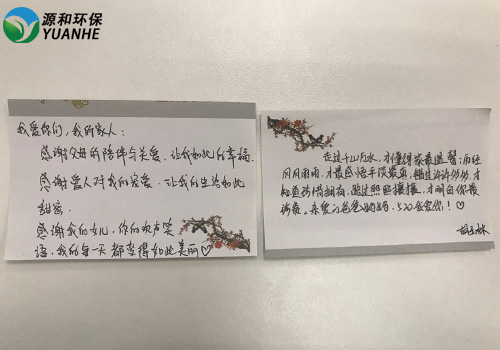 源和环保
YUANHE
我爱你们，我的家人：
感谢父母的陪伴与关爱，让我如此的幸福.
感谢爱人对我的宠爱，让我的生活如此
甜蜜.
感谢我的女儿，你的欢声笑
语，我的每一天都变得如此美丽♡
走过千山万水，才懂得家最温馨；历经
风风雨雨，才最感悟平淡最真；错过许许多多，才
知道珍惜拥有，跑过熙熙攘攘，才明白你最
珍贵。亲爱的爸爸妈妈，520我爱你！♡